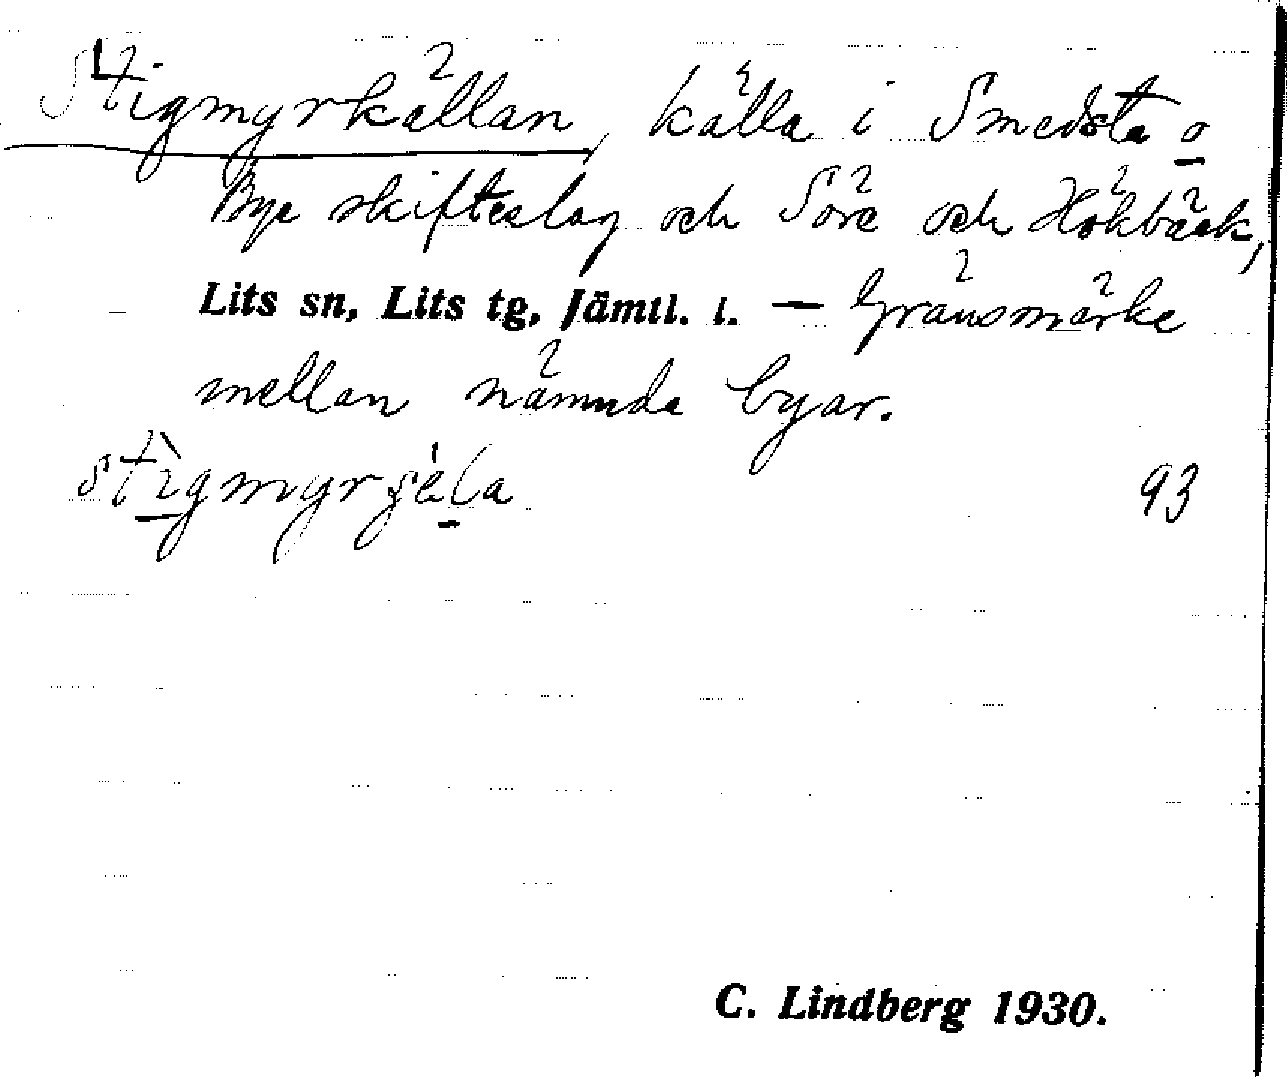 Stigmyrkällan, källa i Smedsta o
Bye skifteslag och Söre och Högbäck,
Lits sn, Lits tg, Jämtl. l. — Gränsmärke
mellan nämnda byar.
93
C. Lindberg 1930.